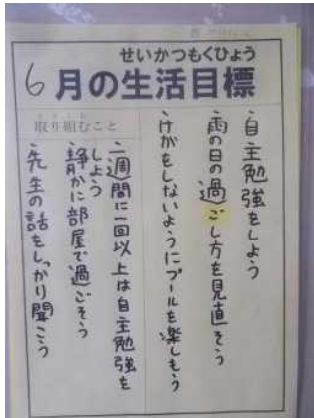 せいかつもくひょう
6月の生活目標
・自主勉強をしよう
・雨の日の過ごし方を見直そう
・けがをしないようにプールを楽しもう
取り組むこと
・一週間に一回以上は自主勉強を
しよう
・静かに部屋で過ごそう
・先生の話をしっかり聞こう